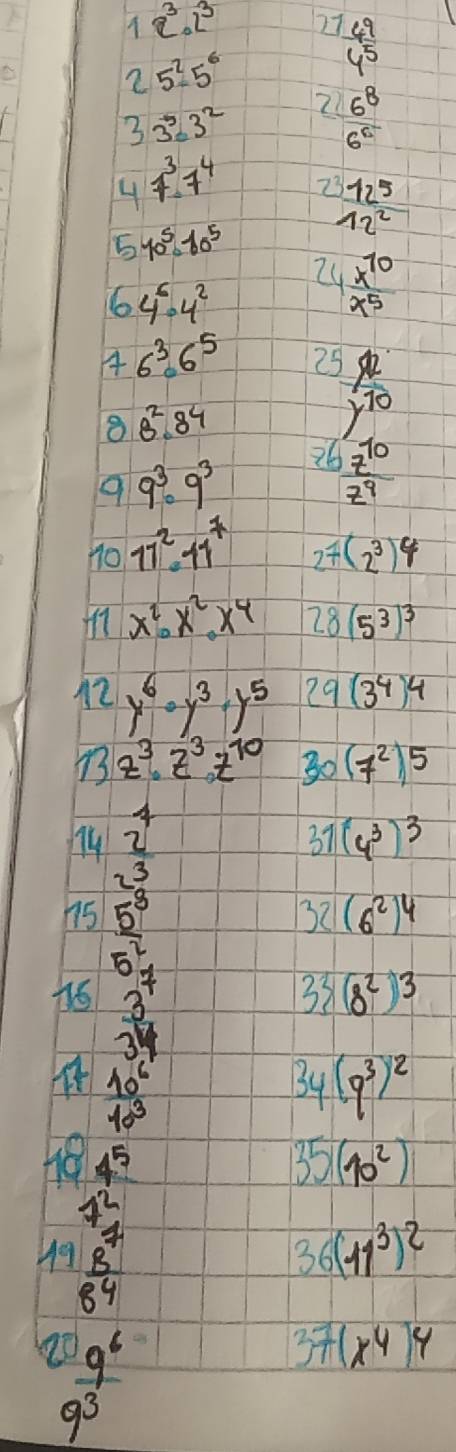 1 2³·2³
2 5²·5⁶
3 3⁵·3²
4 7³·7⁴
5 10⁵·10⁵
6 4⁶·4²
7 6³·6⁵
8 8²·8⁴
9 9³·9³
10 11²·11⁷
11 x²·x²·x⁴
12 y⁶·y³·y⁵
13 z³·z³·z¹⁰
14 2⁷
2³
15 5⁸
5²
16 3⁷
3⁴
17 10⁶
10³
18 7⁵
7²
19 8⁷
8⁴
20 9⁶
9³
21 4⁹
4⁵
22 6⁸
6⁶
23 12⁵
12²
24 x¹⁰
x⁵
25
y¹⁰
26 z¹⁰
z⁹
27 (2³)⁴
28 (5³)³
29 (3⁴)⁴
30 (7²)⁵
31 (4³)³
32 (6²)⁴
33 (8²)³
34 (9³)²
35 (10²)
36 (11³)²
37 (x⁴)⁴